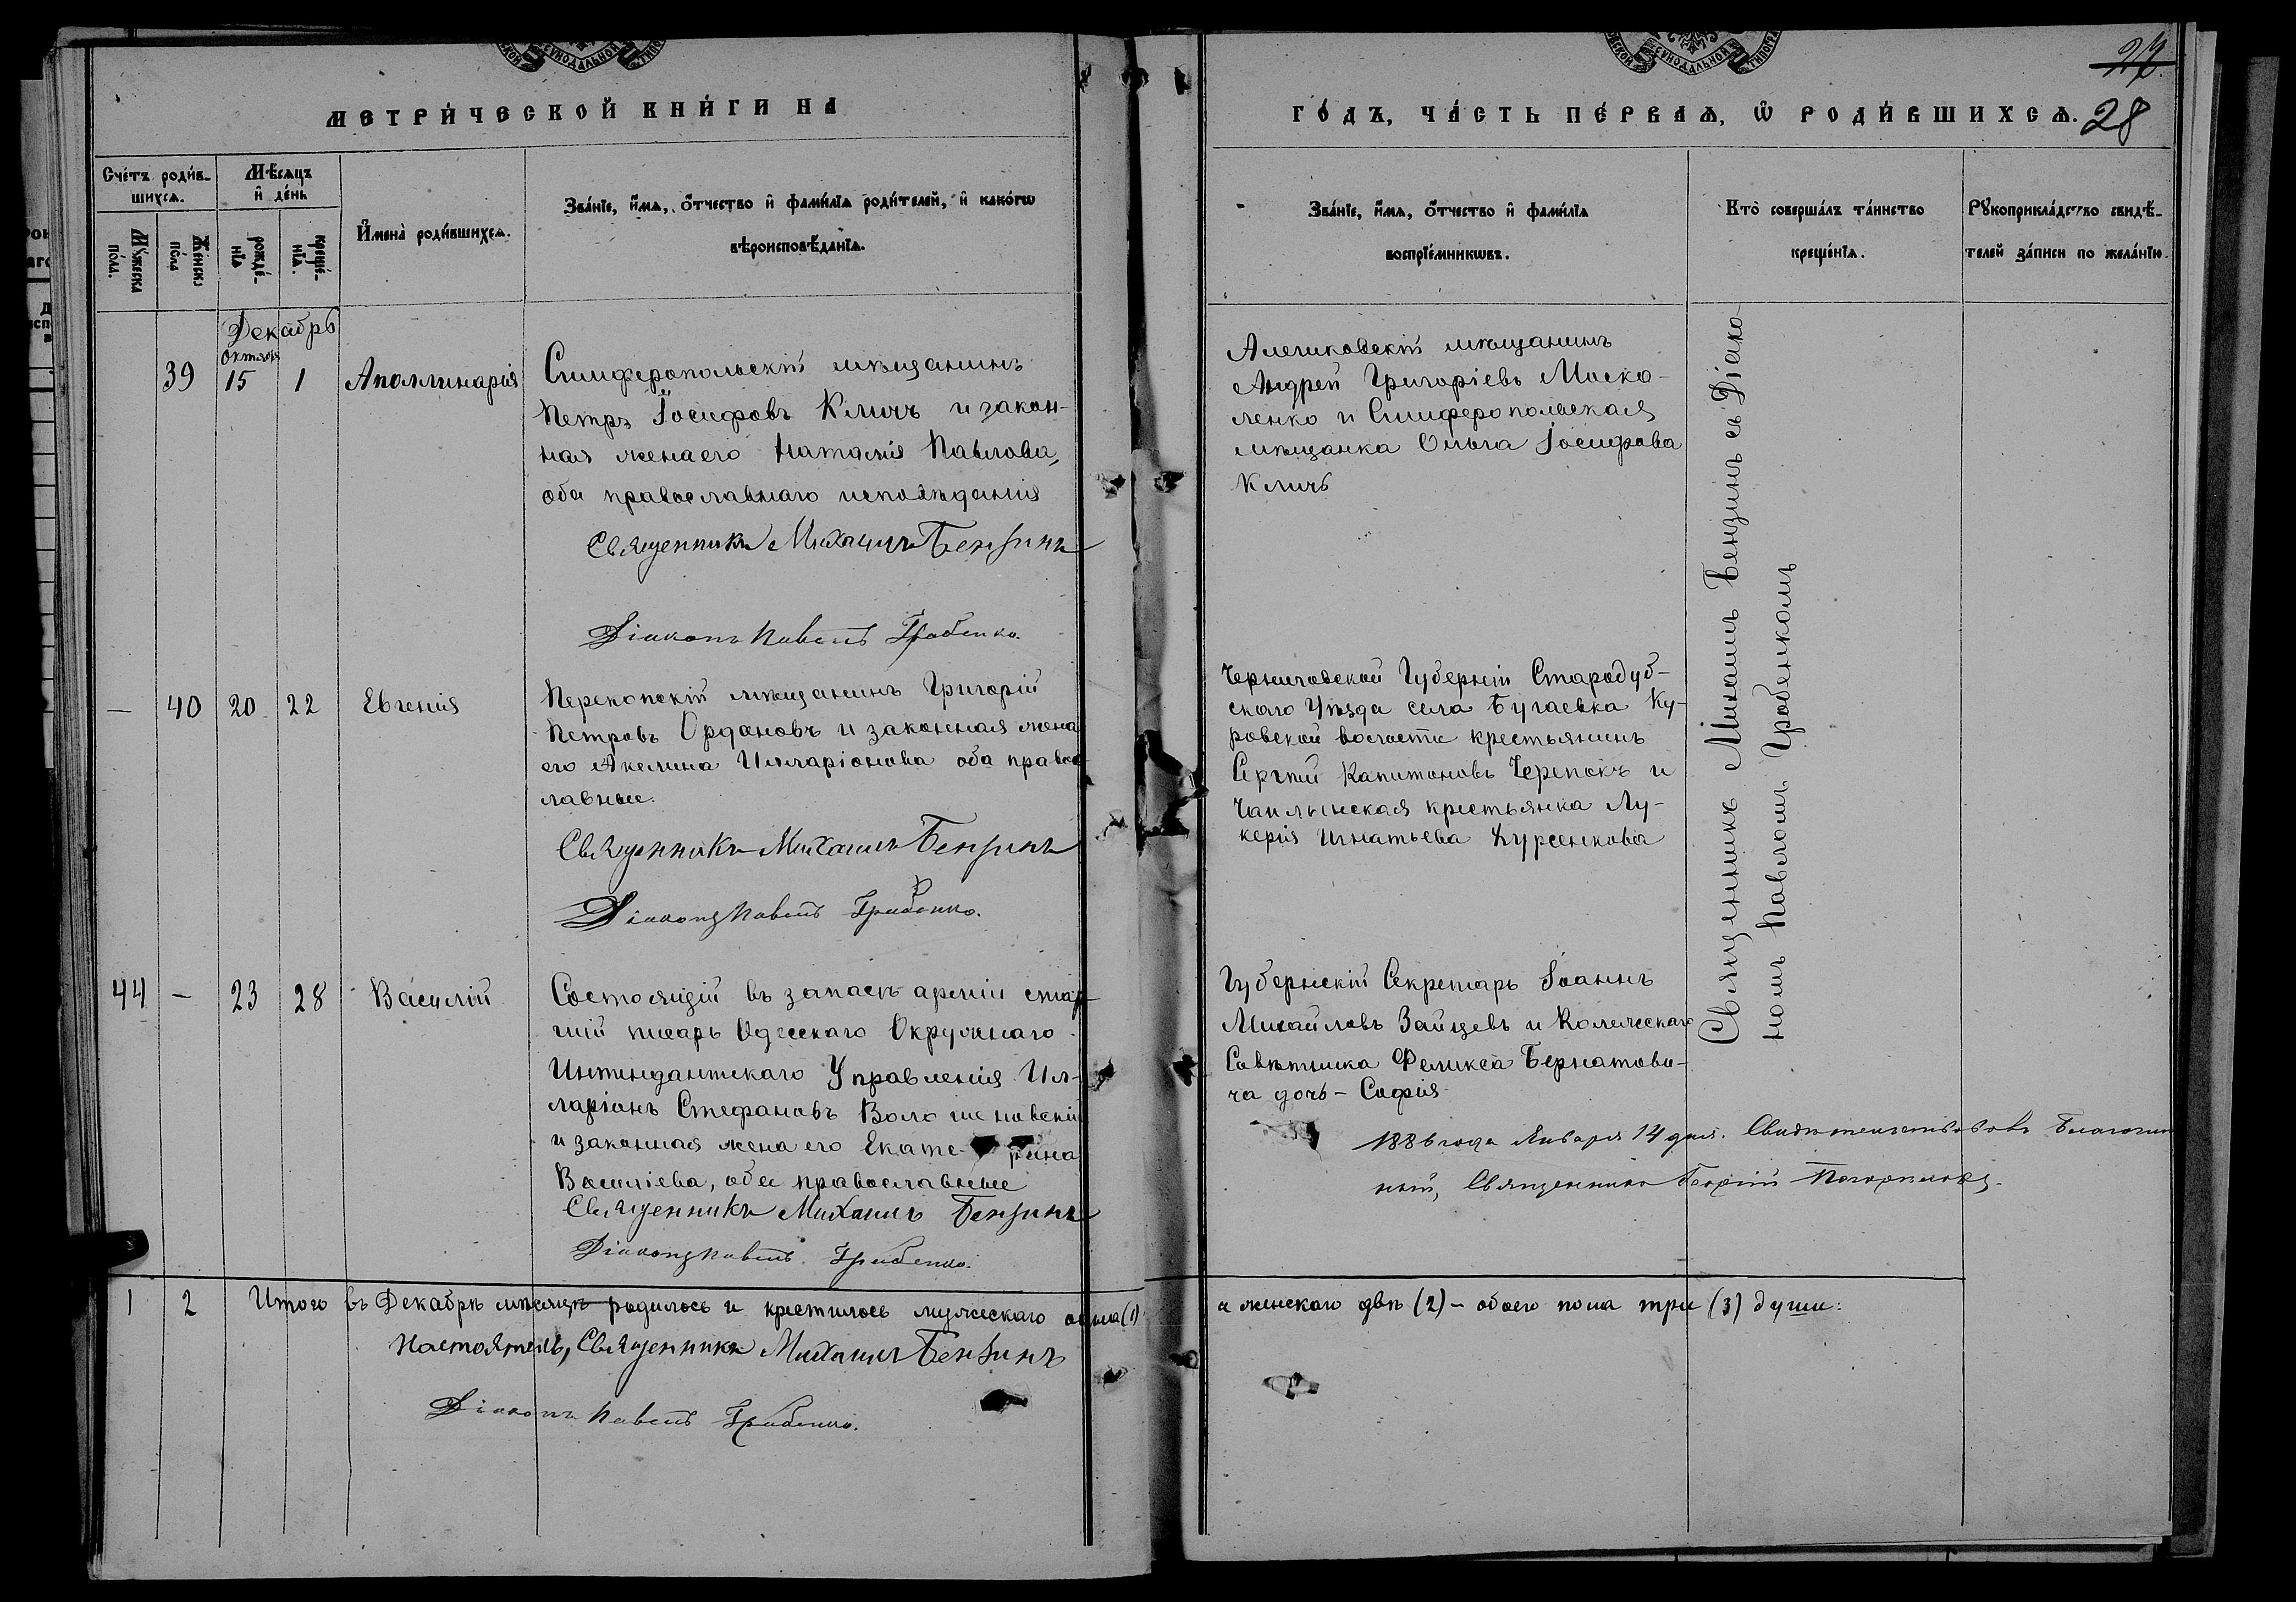 МЕТРИ́ЧЕСКОЙ КНИ́ГИ НА
ГО́ДЪ, ЧА́СТЬ ПЕ́РВАѦ, Ѽ РОДИ́ВШИХСѦ.
27.
28
Сче́тъ роди́в-
шихсѧ.
Мѣ́сяцъ
и҆ де́нь
Мꙋ́жеска
по́ла.
Же́нска
по́ла
рожде́-
нїѧ
креще́-
нїѧ.
И҆мена̀ роди́вшихсѧ.
Зва́нїе, и҆́мѧ, ѻ҆́тчество и҆ фами́лїѧ роди́телей, и҆ како́гѡ
вѣроисповѣ́данїѧ.
Зва́нїе, и҆́мѧ, ѻ҆́тчество и҆ фами́лїѧ
воспрїе́мникѡвъ.
Кто̀ соверша́лъ та́инство
креще́нїѧ.
Рꙋкоприкла́дство свидѣ́-
телей за́писи по жела́нїю.
Декабрь
39
Октября
15
1
Аполлинарія
Симферопольскій мѣщанинъ
Петръ Іосифовъ Кличъ и закон-
ная жена его Наталія Павлова,
оба православнаго исповѣданія
Священникъ Михаилъ Бензинъ
Діаконъ Павелъ Гробенко.
Алешковскій мѣщанинъ
Андрей Григоріевъ Моско-
ленко и Симферопольская
мѣщанка Ольга Іосифова
Кличъ
Священникъ Михаилъ Бензинъ съ Діако-
номъ Павломъ Гробенкомъ
—
40
20
22
Евгенія
Перекопскій мѣщанинъ Григорій
Петровъ Ордановъ и законная жена
его Акелина Илларіонова оба правос-
лавные.
Священникъ Михаилъ Бензинъ
Діаконъ Павелъ Гробенко.
Черниговской Губерніи Стародуб-
скаго Уѣзда села Бугаевка Ку-
ровской волости крестьянинъ
Сергѣй Капитоновъ Черепокъ и
Чаплынская крестьянка Лу-
керія Игнатьева Курсенкова
44
—
23
28
Василій
Состоящій въ запасѣ арміи стар-
шій писарь Одесскаго Окружнаго
Интендантскаго Управленія Ил-
ларіонъ Стефановъ Волошновскій
и законная жена его Екате- рина
Василіева, оба православные
Священникъ Михаилъ Бензинъ
Діаконъ Павелъ Гробенко.
Губернскій Секретарь Іоаннъ
Михайловъ Зайцевъ и Колежскаго
Совѣтника Феликса Бернатови-
ча дочь – Софія
1886 года Января 14 дня. Свидѣтельствовалъ Благочин-
ный, Священникъ Георгій
1
2
Итого въ Декабрѣ мѣсяцѣ родилось и крестилось мужескаго одна (1)
а женскаго двѣ (2) – обоего пола три (3) души:
Настоятель, Священникъ Михаилъ Бензинъ
Діаконъ Павелъ Гробенко.